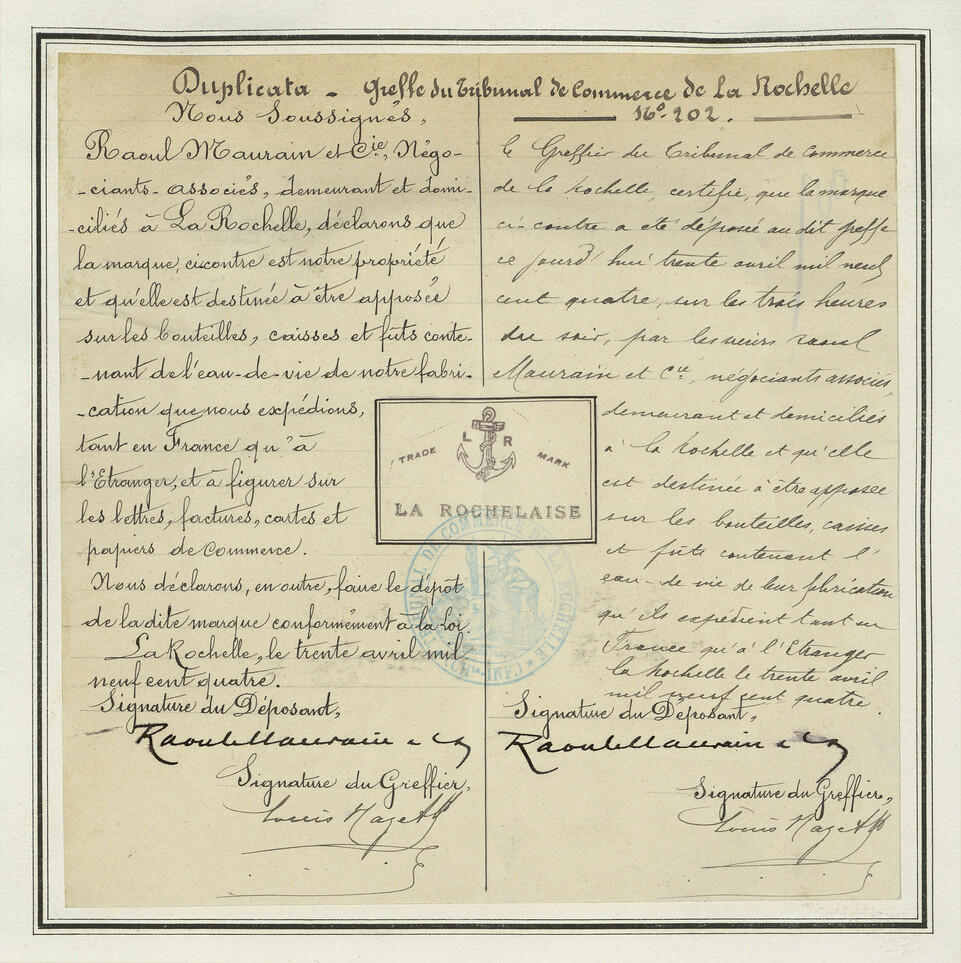 Duplicata - Greffe du Tribunal de Commerce de La Rochelle
Nº. 202.
Nous Soussignés,
Raoul Maurain et Cie, Négo-
-ciants-associés, demeurant et domi-
-ciliés à La Rochelle, déclarons que
la marque, ci contre est notre propriété
et qu'elle est destinée à être apposée
sur les bouteilles, caisses et fûts conte-
-nant de l'eau-de-vie de notre fabri-
-cation que nous expédions,
tant en France qu'à
l'Etranger, et à figurer sur
les lettres, factures, cartes et
papiers de Commerce.
Nous déclarons, en outre, faire le dépôt
de la dite marque conformément à la Loi.
La Rochelle, le trente avril mil
neuf cent quatre.
Signature du Déposant,
Raoul Maurain
Signature du Greffier,
Louis
TRADE L R MARK
LA ROCHELAISE
TRIBUNAL DE COMMERCE DE LA ROCHELLE
(CHte INFre)
le Greffier du Tribunal de commerce
de la Rochelle, certifie, que la marque
ci-contre a été déposée au dit greffe
ce jourd'hui trente avril mil neuf
cent quatre, sur les trois heures
du soir, par les sieurs raoul
Maurain et Cie, négociants associés,
demeurant et domiciliés
à la Rochelle et qu'elle
est destinée à être apposée
sur les bouteilles, caisses
et fûts contenant l'
eau-de vie de leur fabrication
qu'ils expédient tant en
France qu'à l'Etranger
la Rochelle le trente avril
mil neuf cent quatre.
Signature du Déposant,
Raoul Maurain
Signature du Greffier,
Louis